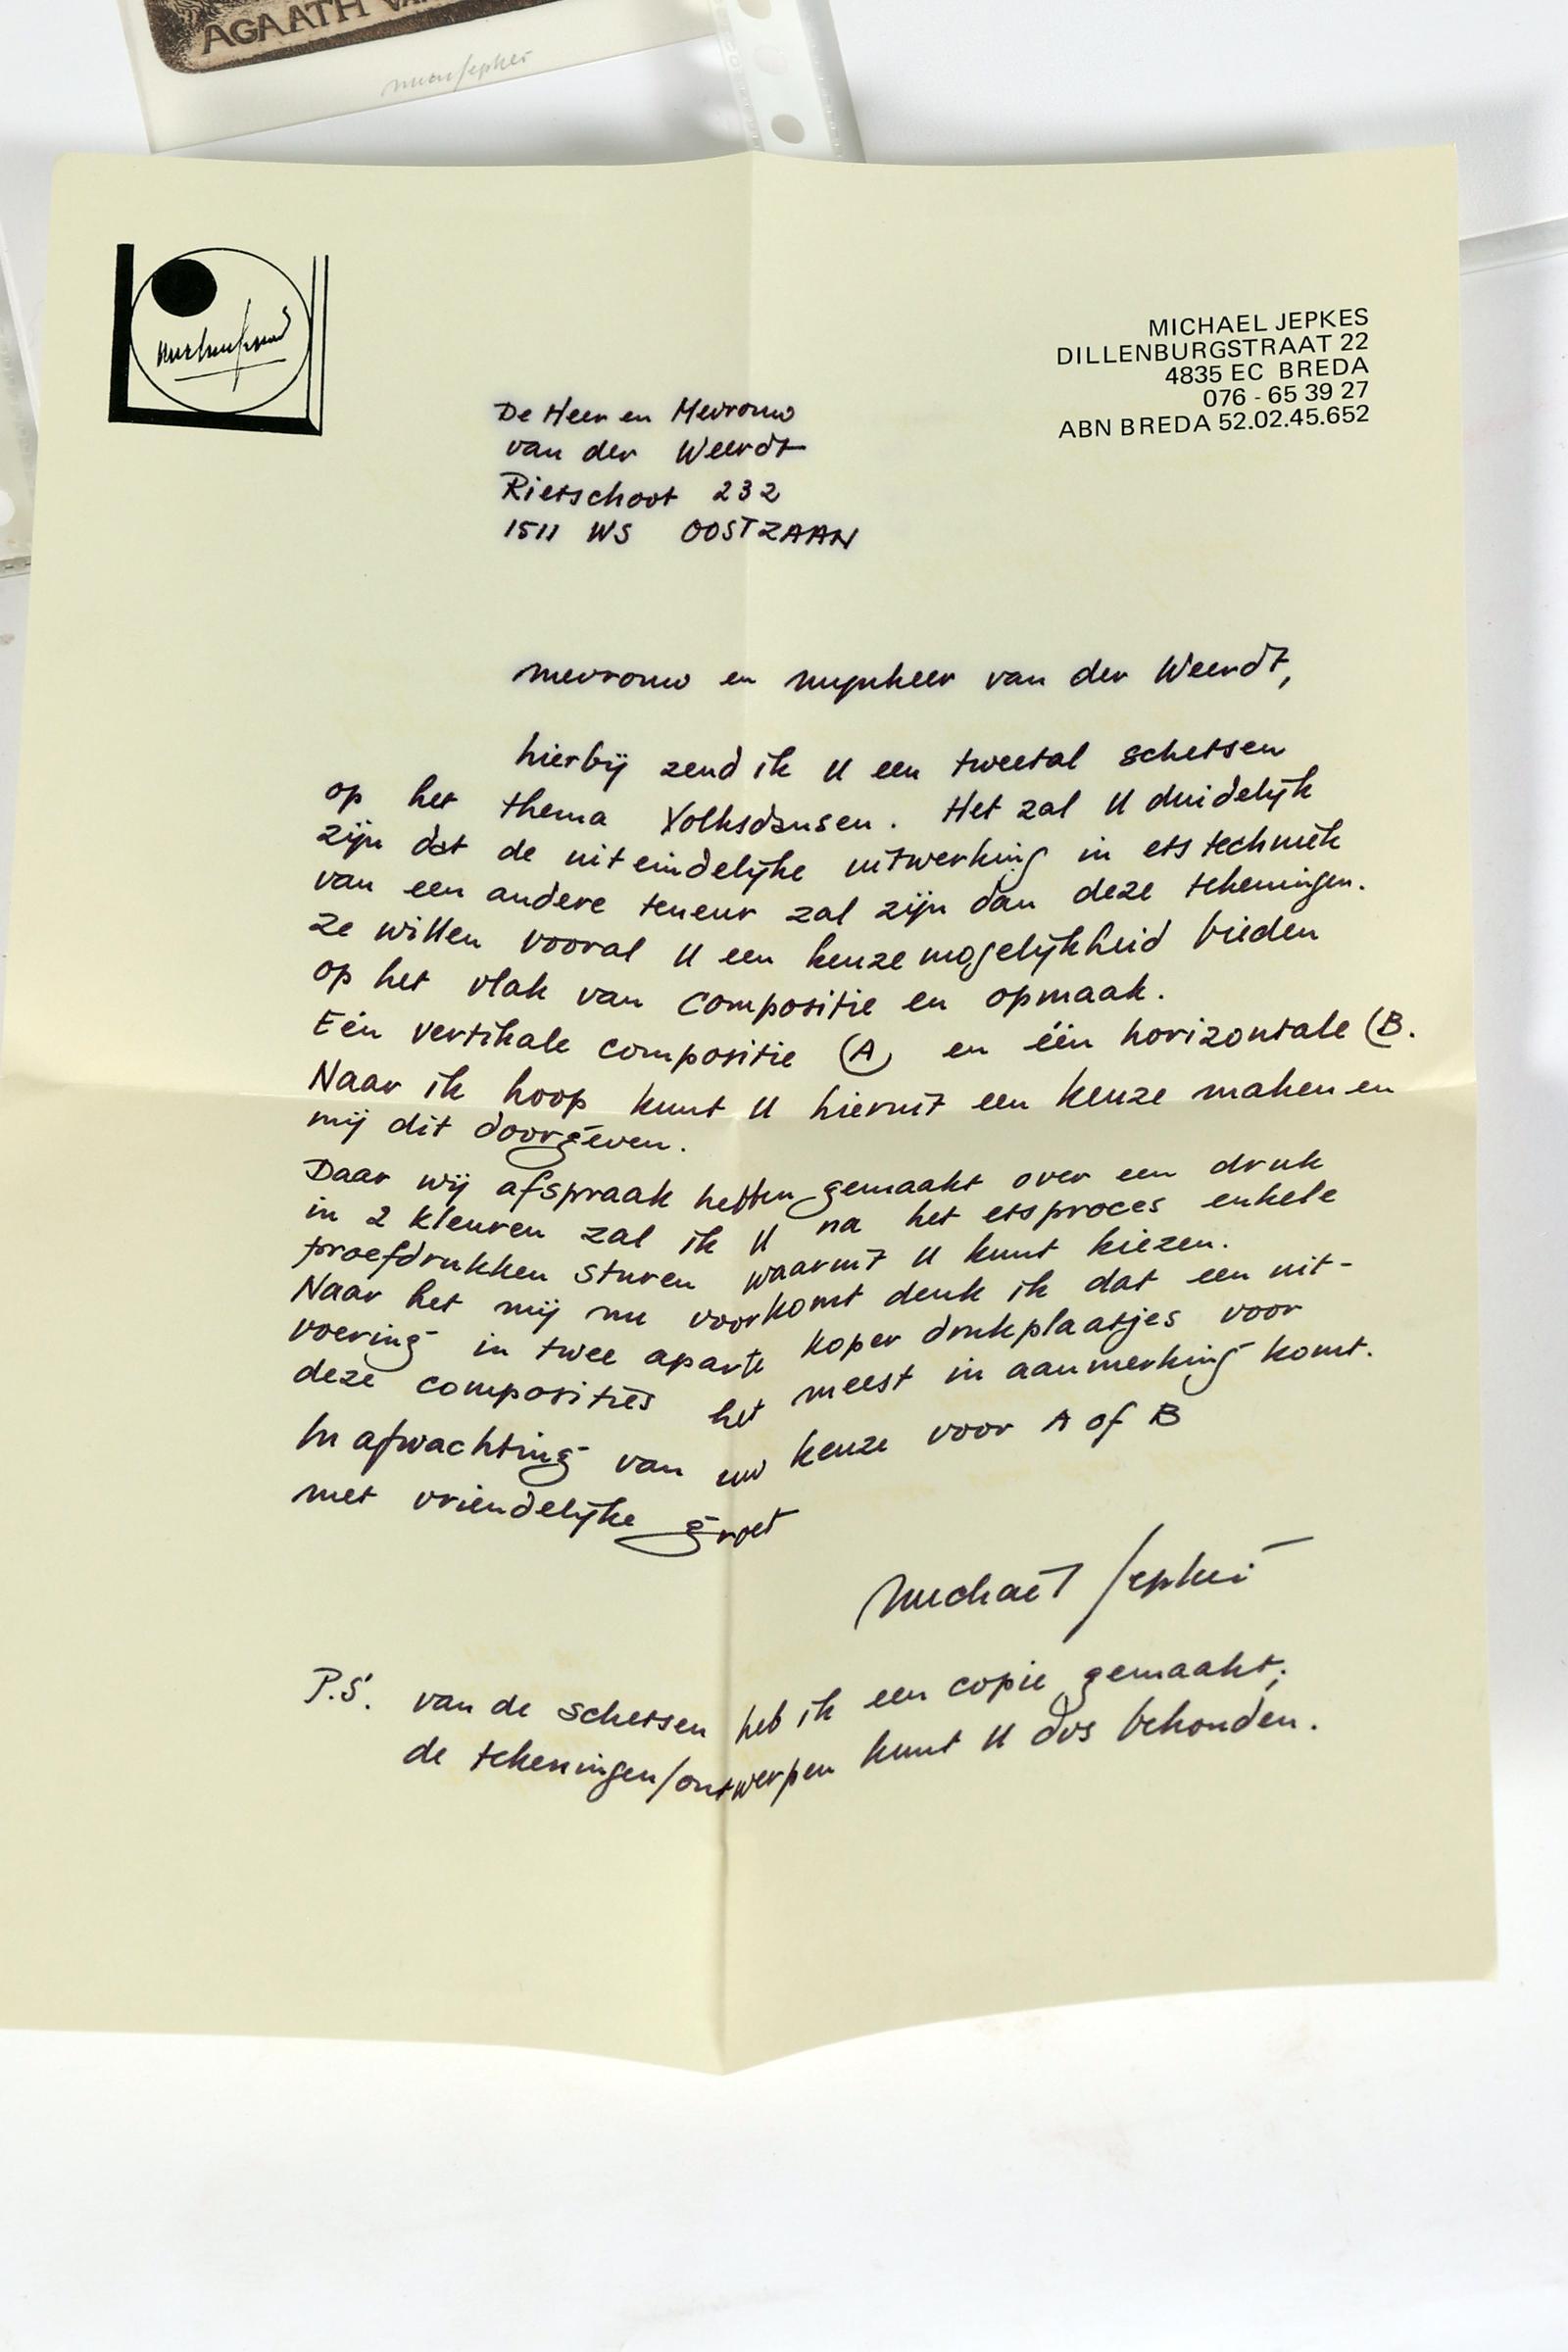 AGAATH VAN
MICHAEL JEPKES
DILLENBURGSTRAAT 22
4835 EC BREDA
076 - 65 39 27
ABN BREDA 52.02.45.652
De Heer en Mevrouw
van der Weerdt
Rietschoot 232
1511 WS OOSTZAAN
mevrouw en mynheer van der Weerdt,
hierbij zend ik U een tweetal schetsen
op het thema Volksdansen. Het zal U duidelijk
zijn dat de uiteindelijke uitwerking in etstechniek
van een andere teneur zal zijn dan deze tekeningen.
Ze willen vooral U een keuzemogelijkheid bieden
op het vlak van compositie en opmaak.
Eén vertikale compositie (A) en één horizontale (B.
Naar ik hoop kunt U hieruit een keuze maken en
mij dit doorgeven.
Daar wij afspraak hebben gemaakt over een druk
in 2 kleuren zal ik U na het etsproces enkele
proefdrukken sturen waaruit U kunt kiezen.
Naar het mij nu voorkomt denk ik dat een uit-
voering in twee aparte koper drukplaatjes voor
deze composities het meest in aanmerking komt.
In afwachting van uw keuze voor A of B
met vriendelijke groet
Michael Jepkes
P.S. van de schetsen heb ik een copie gemaakt;
de tekeningen/ontwerpen kunt U dus behouden.